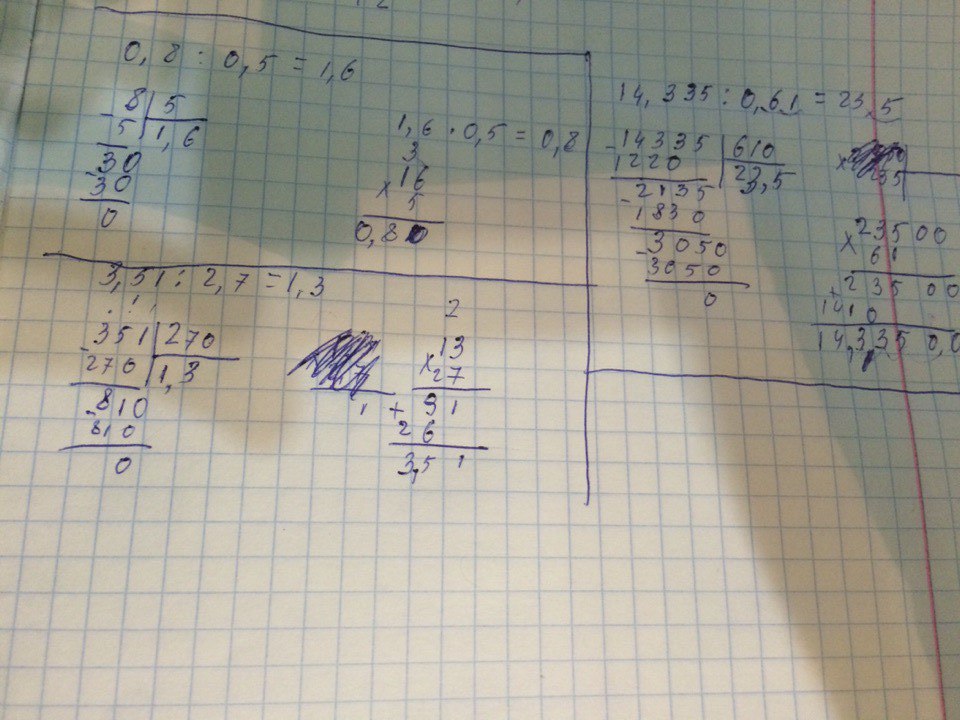 0,8 : 0,5 = 1,6
8 | 5
- 5 | 1,6
- 30
30
0
1,6 · 0,5 = 0,8
3
× 16
5
0,80
3,51 : 2,7 = 1,3
- 351 | 270
270 | 1,3
- 810
810
0
2
× 13
27
1 + 91
26
3,51
14,335 : 0,61 = 23,5
- 14335 | 610
1220 | 23,5
- 2135
1830
- 3050
3050
0
× 23500
61
+ 23500
1410
14,3350,0